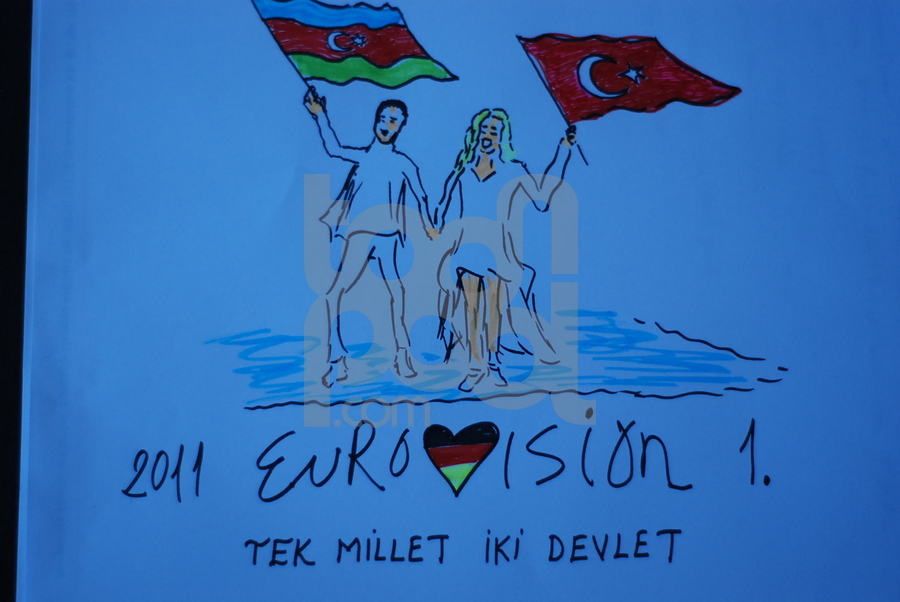 2011 EURO VISION 1.
TEK MİLLET İKİ DEVLET